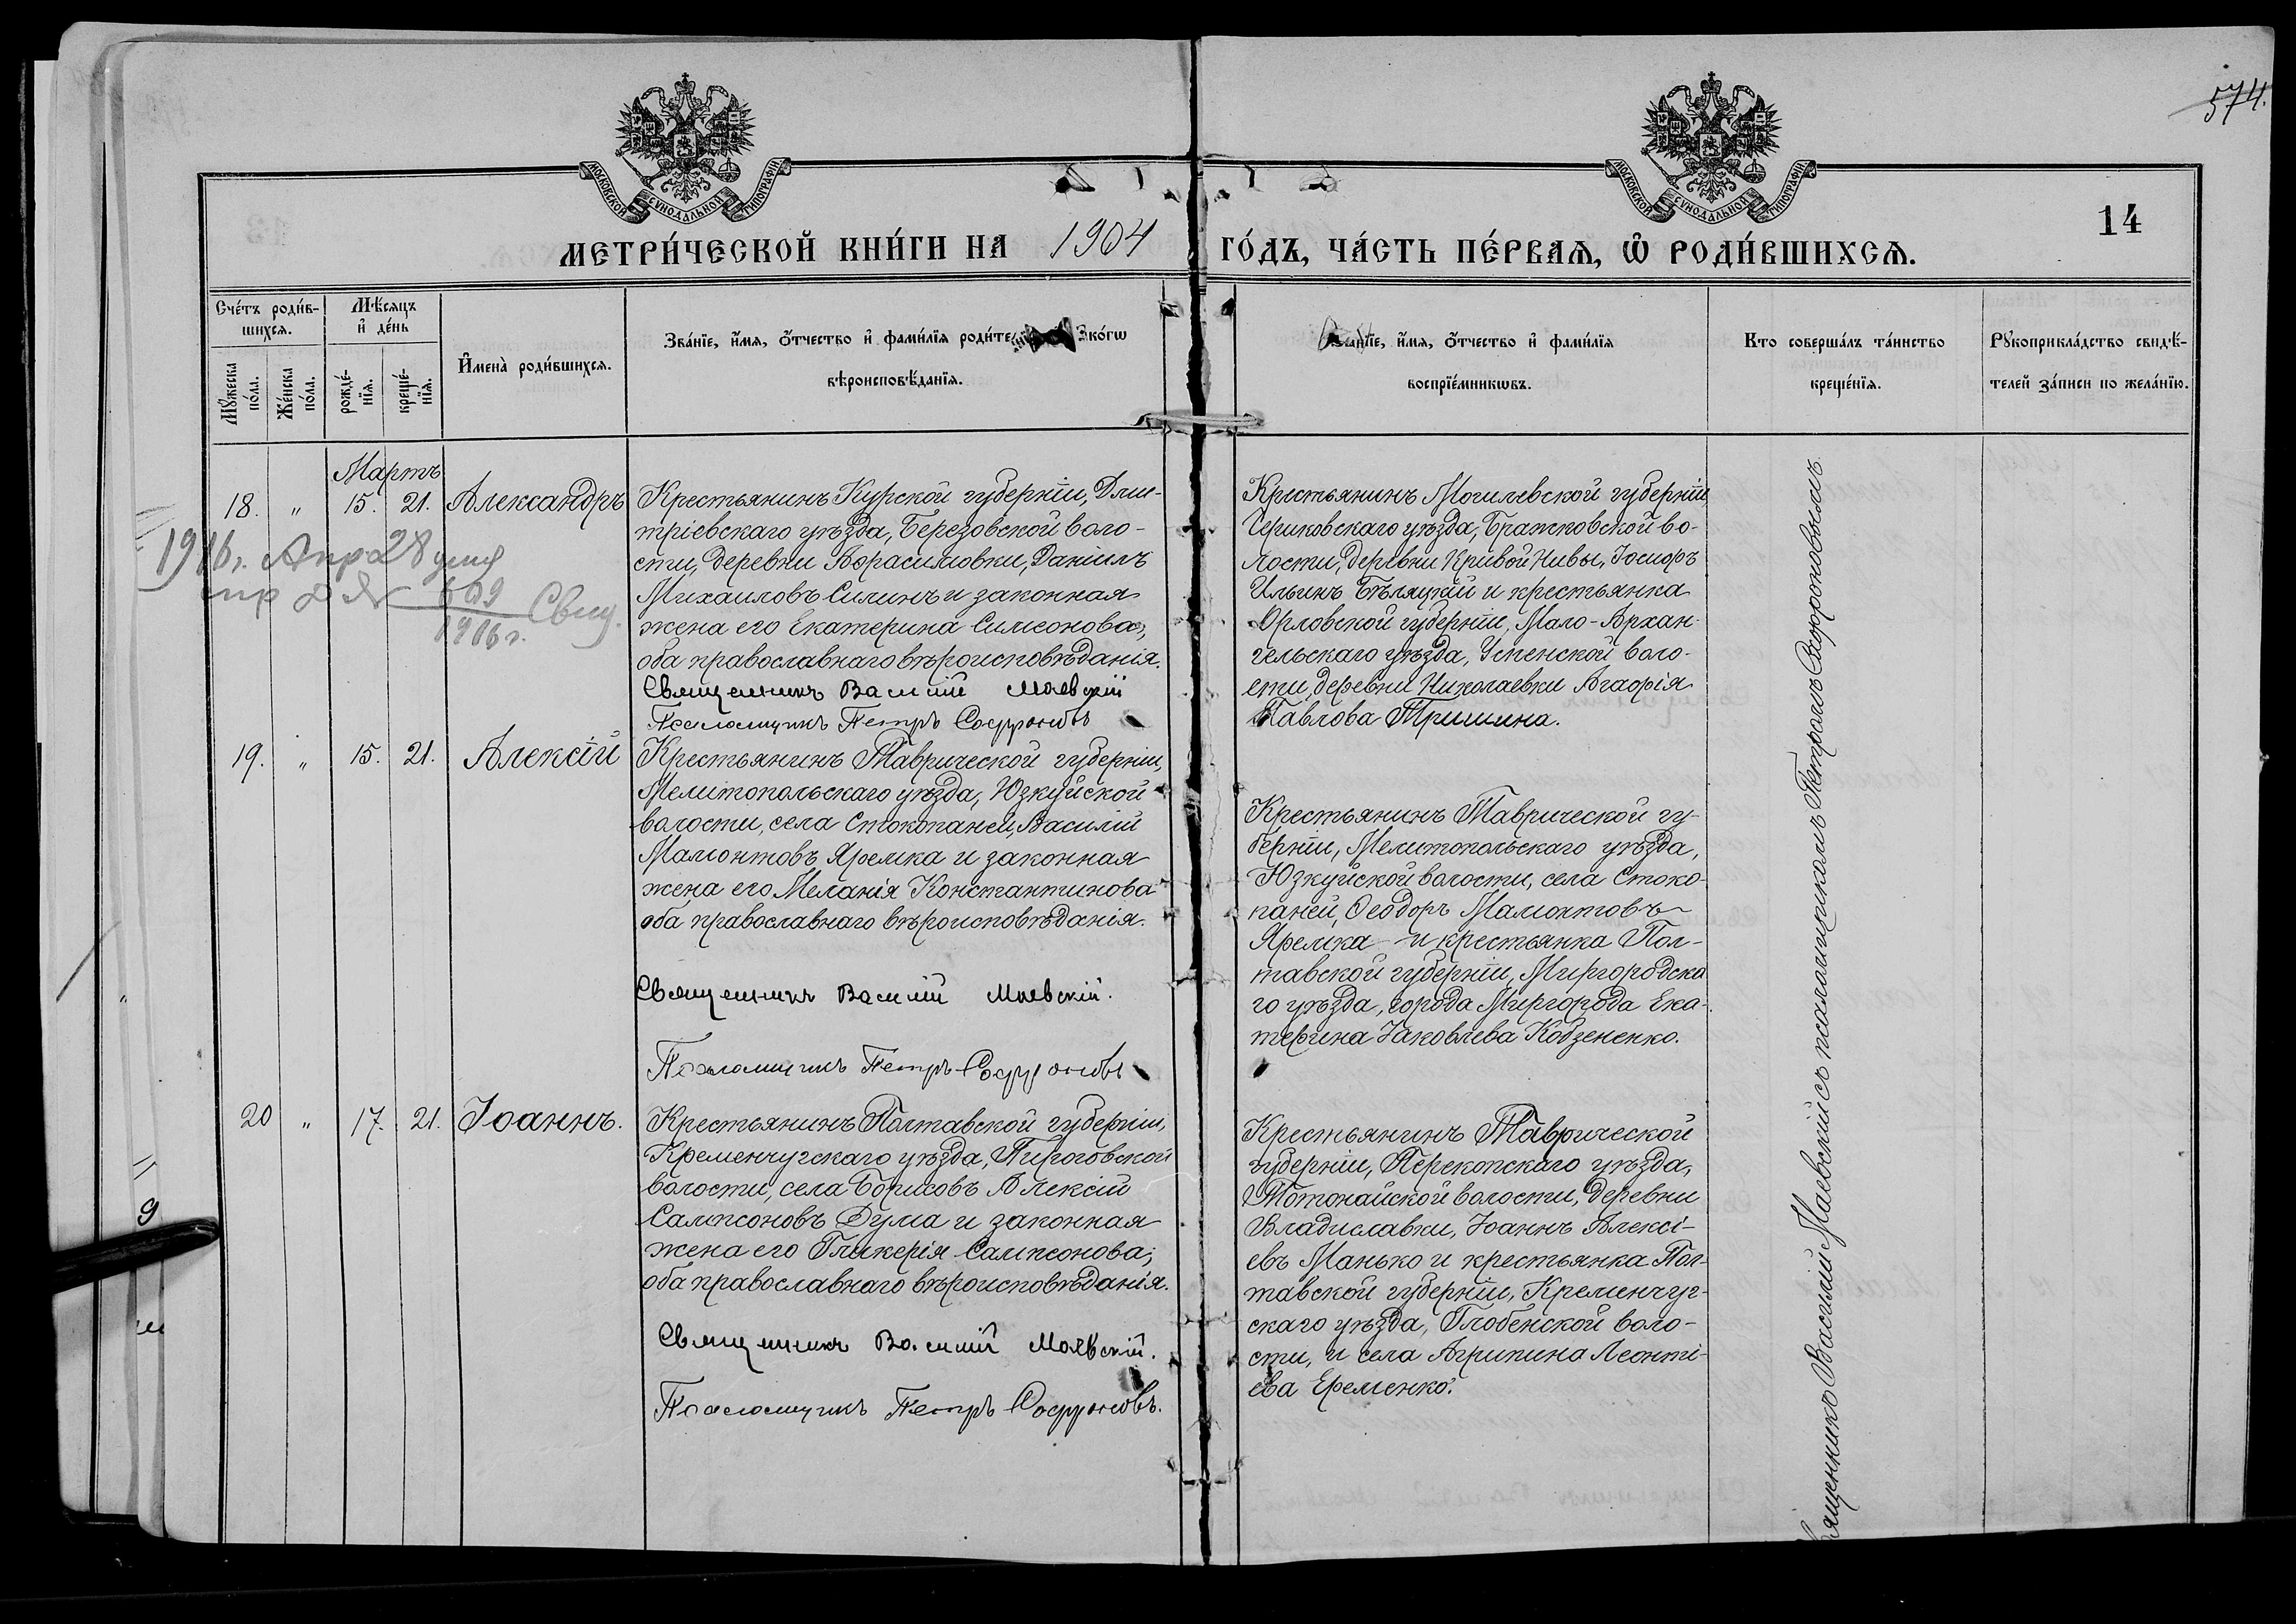 574.
МОСКОВСКОЙ СУНОДАЛЬНОЙ ТИПОГРАФІИ
МОСКОВСКОЙ СУНОДАЛЬНОЙ ТИПОГРАФІИ
14
МЕТРИ́ЧЕСКОЙ КНИ́ГИ НА 1904 ГО́ДЪ, ЧА́СТЬ ПЕ́РВАѦ, Ѡ РОДИ́ВШИХСѦ.
Сче́тъ роди́в-
шихсѧ.
Мꙋ́жеска по́ла.
Же́нска по́ла.
Мѣ́сѧцъ
и҆ де́нь
рожде́-
нїѧ.
креще́-
нїѧ.
И҆мена̀ роди́вшихсѧ.
Зва́нїе, и҆́мѧ, ѻ҆́тчество и҆ фами́лїѧ роди́те ко́гѡ
вѣроисповѣ́данїѧ.
Зва́нїе, и҆́мѧ, ѻ҆́тчество и҆ фами́лїѧ
воспрїе́мникѡвъ.
Кто соверша́лъ та́инство
креще́нїѧ.
Рꙋкоприкла́дство свидѣ́-
телей за́писи по жела́нїю.
Мартъ
18. " 15. 21. Александръ
Крестьянинъ Курской губерніи, Дми-
тріевскаго уѣзда, Березовской воло-
сти, деревни Ворасимовки, Даніилъ
Михаиловъ Силинъ и законная
жена его Екатерина Симеонова,
оба православнаго вѣроисповѣданія.
Священникъ Василій Маевскій
Псаломщикъ Петръ Софроновъ
Крестьянинъ Могилевской губерніи,
Чериковскаго уѣзда, Братковской во-
лости, деревни Кривой Нивы, Іосифъ
Ильинъ Бѣляцкій и крестьянка
Орловской губерніи, Мало-Архан-
гельскаго уѣзда, Успенской воло-
сти, деревни Николаевки Агафія
Павлова Тришина.
1916г. Апр 28
609
1916г.
Свящ.
19. " 15. 21. Алексій
Крестьянинъ Таврической губерніи,
Мелитопольскаго уѣзда, Юзкуйской
волости, села Стокопаней, Василій
Мамонтовъ Яремка и законная
жена его Меланія Константинова
оба православнаго вѣроисповѣданія.
Священникъ Василій Маевскій.
Псаломщикъ Петръ Софроновъ
Крестьянинъ Таврической гу-
берніи, Мелитопольскаго уѣзда,
Юзкуйской волости, села Стоко-
паней, Ѳеодоръ Мамонтовъ
Яремка и крестьянка Пол-
тавской губерніи, Миргородска
го уѣзда, города Миргорода Ека-
терина Іаковлева Кобзененко.
20 " 17. 21. Іоаннъ.
Крестьянинъ Полтавской губерніи,
Кременчугскаго уѣзда, Пироговской
волости, села Борисовъ Алексій
Сампсоновъ Дума и законная
жена его Гликерія Сампсонова,
оба православнаго вѣроисповѣданія.
Священникъ Василій Маевскій.
Псаломщикъ Петръ Софроновъ.
Крестьянинъ Таврической
губерніи, Перекопскаго уѣзда,
Тотонайской волости, деревни
Владиславки, Іоаннъ Алексі-
евъ Манько и крестьянка Пол-
тавской губерніи, Кременчуг-
скаго уѣзда, Глобенской воло-
сти, и села Агрипина Леонті-
ева Еременко.
ященникъ Василій Маевскій съ псаломщикомъ Петромъ Софроновымъ
9